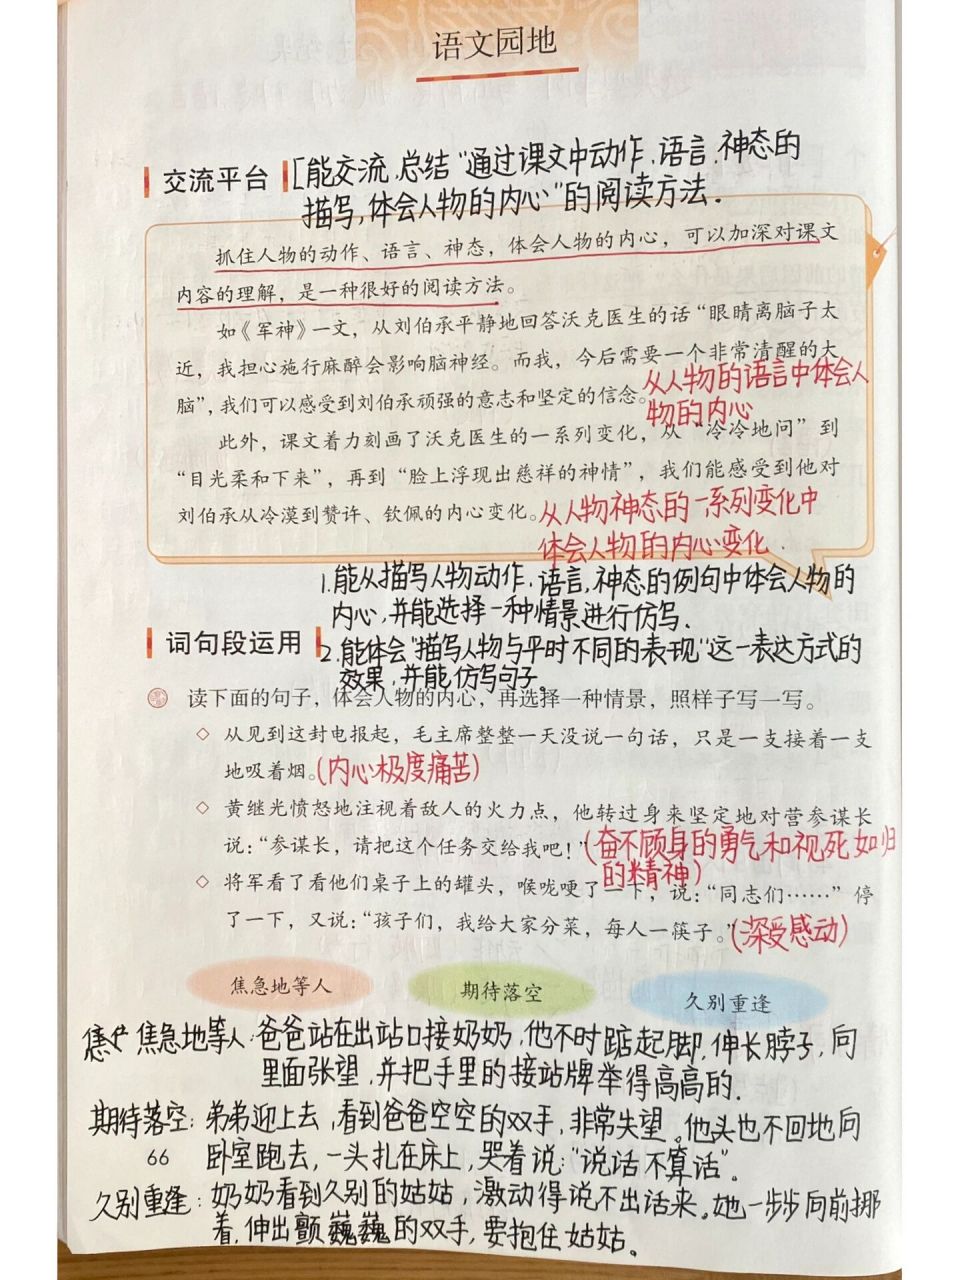 语文园地
交流平台 [能交流、总结“通过课文中动作、语言、神态的
描写,体会人物的内心”的阅读方法.
抓住人物的动作、语言、神态，体会人物的内心，可以加深对课文
内容的理解，是一种很好的阅读方法。
如《军神》一文，从刘伯承平静地回答沃克医生的话“眼睛离脑子太
近，我担心施行麻醉会影响脑神经。而我，今后需要一个非常清醒的大
脑”，我们可以感受到刘伯承顽强的意志和坚定的信念。
从人物的语言中体会人
物的内心
此外，课文着力刻画了沃克医生的一系列变化，从“冷冷地问”到
“目光柔和下来”，再到“脸上浮现出慈祥的神情”，我们能感受到他对
刘伯承从冷漠到赞许、钦佩的内心变化。从人物神态的一系列变化中
体会人物的内心变化.
1.能从描写人物动作、语言、神态的例句中体会人物的
内心,并能选择一种情景进行仿写.
词句段运用 2.能体会“描写人物与平时不同的表现”这一表达方式的
效果,并能仿写句子。
读下面的句子，体会人物的内心，再选择一种情景，照样子写一写。
◇ 从见到这封电报起，毛主席整整一天没说一句话，只是一支接着一支
地吸着烟。(内心极度痛苦)
◇ 黄继光愤怒地注视着敌人的火力点，他转过身来坚定地对营参谋长
说：“参谋长，请把这个任务交给我吧！”(奋不顾身的勇气和视死如归
的精神)
◇ 将军看了看他们桌子上的罐头，喉咙哽了一下，说：“同志们……”停
了一下，又说：“孩子们，我给大家分菜，每人一筷子。”(深受感动)
焦急地等人 期待落空 久别重逢
焦急地等人:爸爸站在出站口接奶奶,他不时踮起脚,伸长脖子,向
里面张望,并把手里的接站牌举得高高的.
期待落空:弟弟迎上去,看到爸爸空空的双手,非常失望。他头也不回地向
66 卧室跑去,一头扎在床上,哭着说:“说话不算话”。
久别重逢:奶奶看到久别的姑姑,激动得说不出话来。她一步步向前挪
着,伸出颤巍巍的双手,要抱住姑姑。